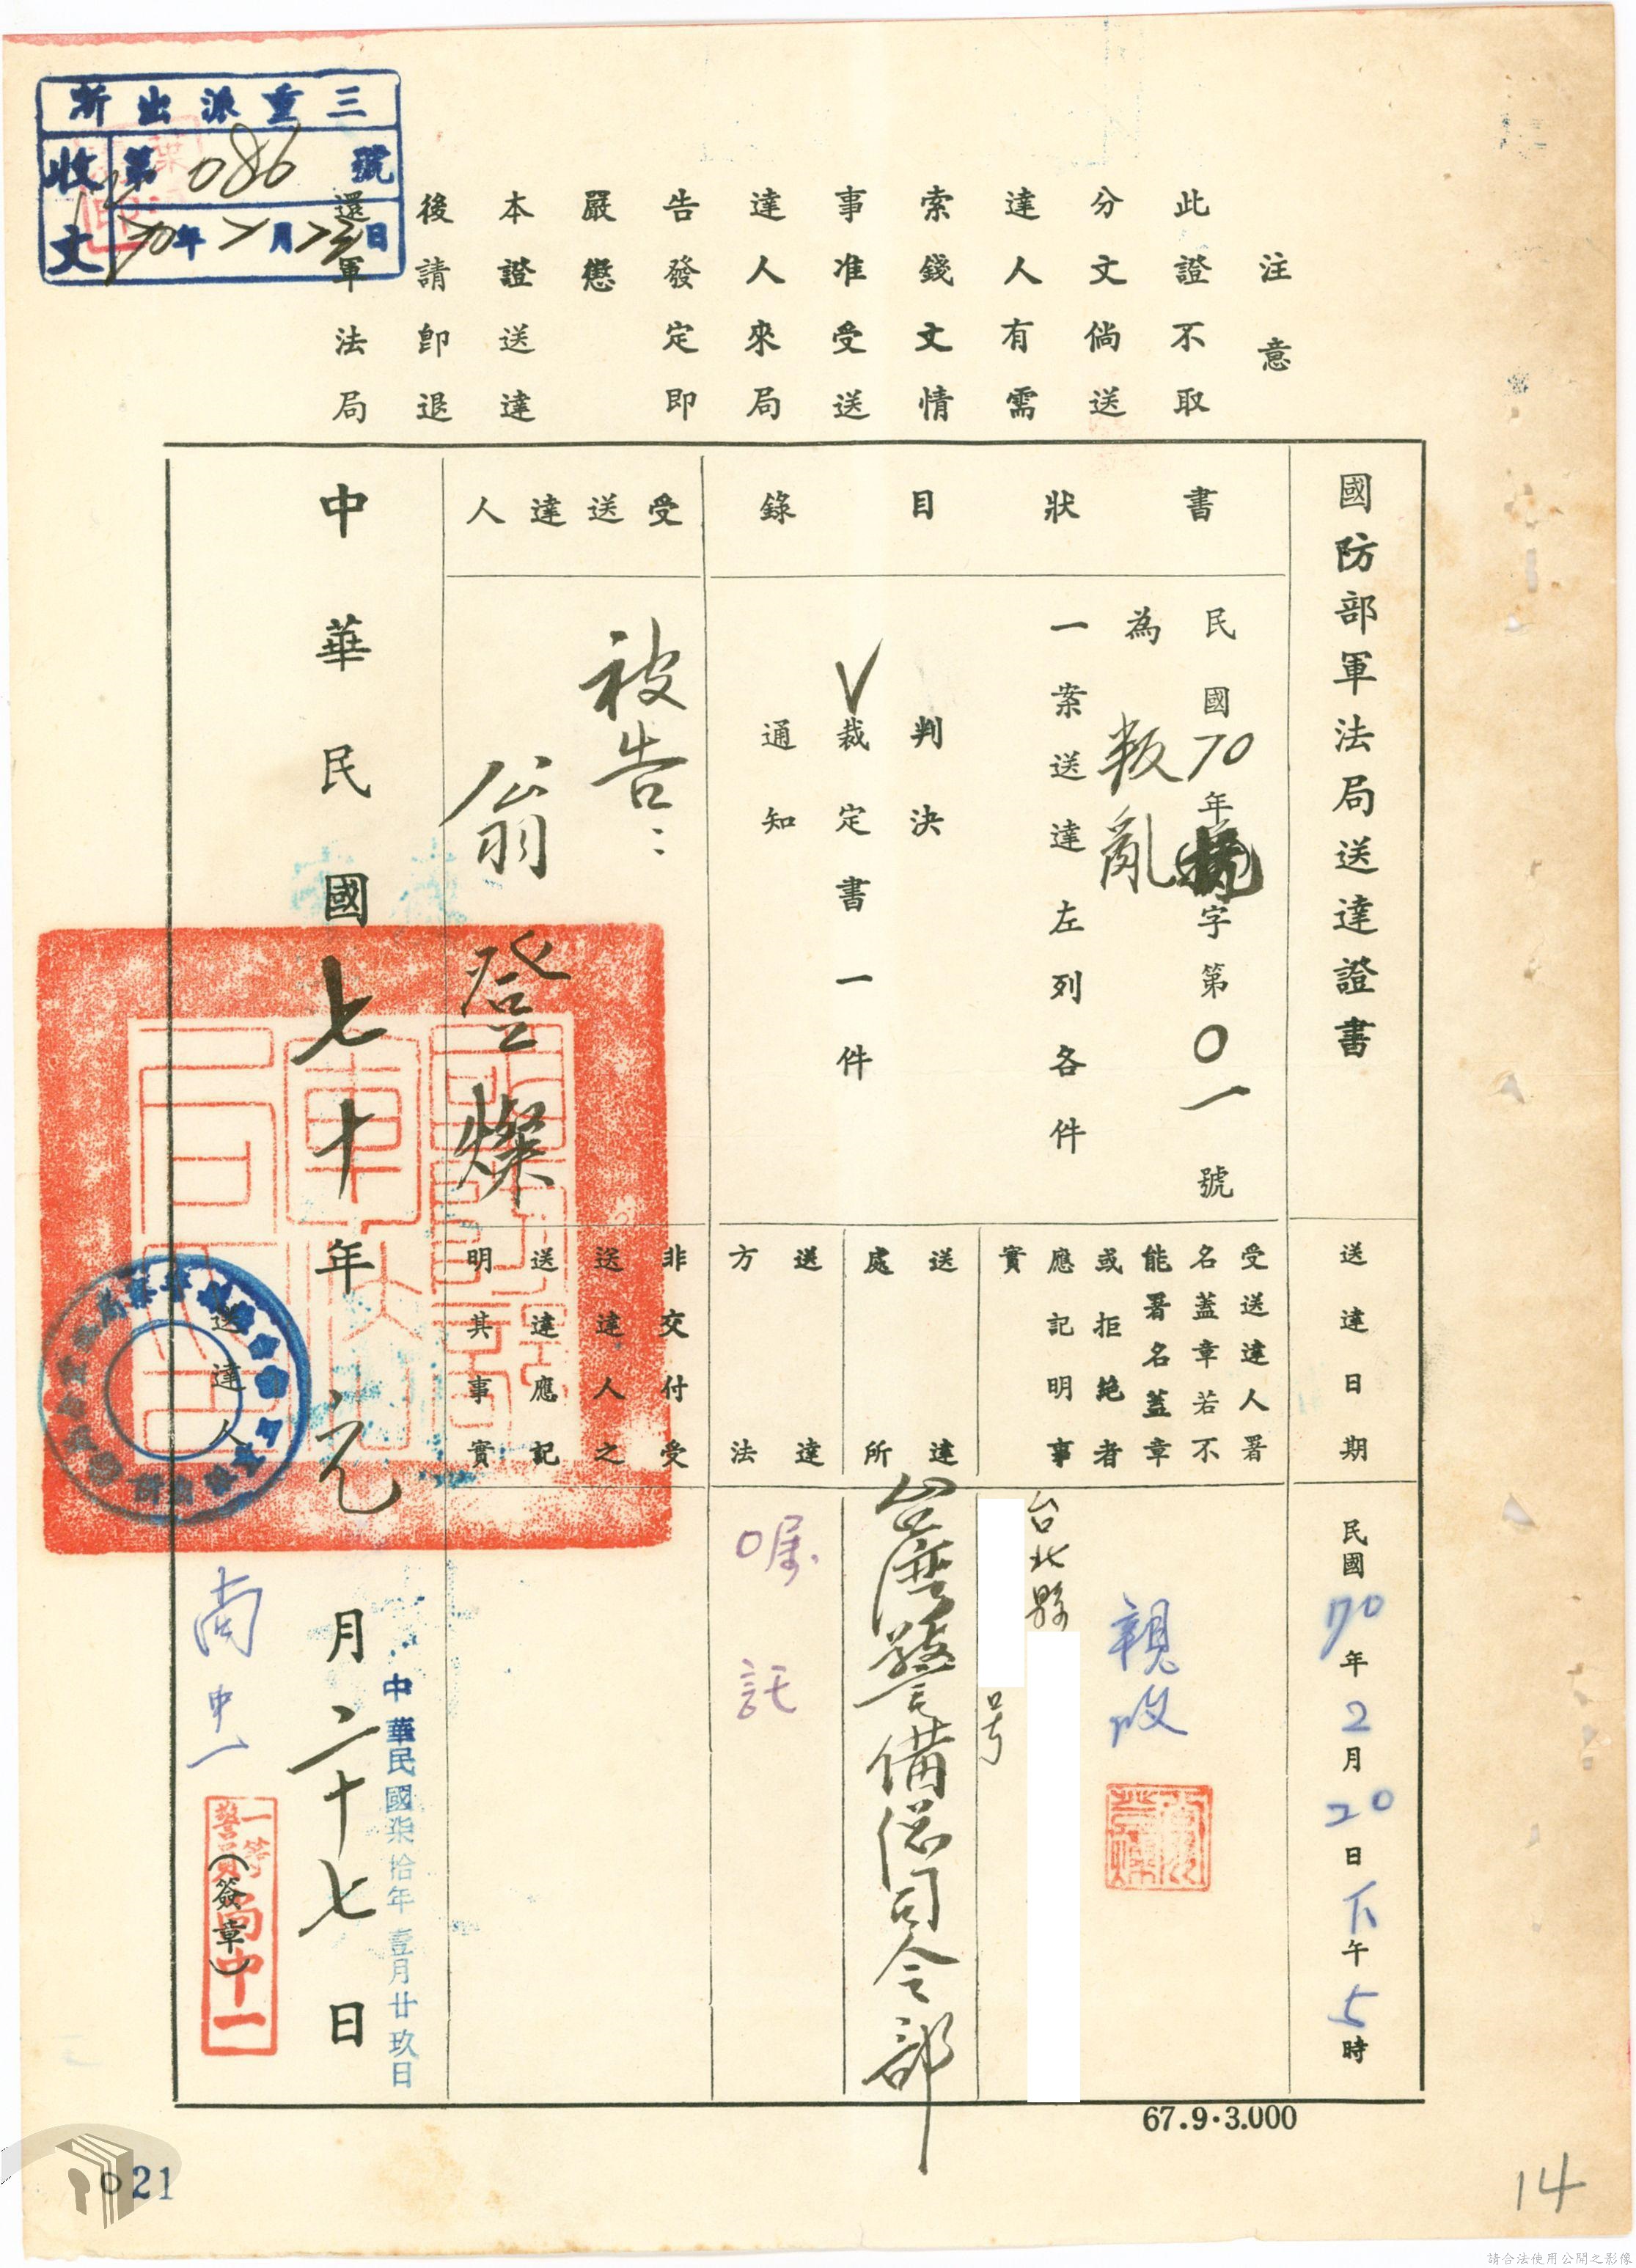 三重派出所
收文
第086號
年月日
注意
此證不取
分文倘送
達人有需
索錢文情
事准受送
達人來局
告發定即
嚴懲
本證送達
後請卽退
還軍法局
國防部軍法局送達證書
書狀目錄
民國70年字第0一號
為叛亂
一案送達左列各件
判決
V裁定書一件
通知
受送達人
被告：
翁登燦
送達日期
民國70年2月20日下午5時
受送達人署
名蓋章若不
能署名蓋章
或拒絶者
應記明事
實
親收
台北縣
号
送達處所
台灣警備總司令部
送達方法
囑託
非交付受
送達人之
送達應記
明其事實
中華民國七十年元月二十七日
中華民國柒拾年壹月廿玖日
送達人
尚中一
(簽章)
一等警員
尚中一
67.9.3.000
021
14
請合法使用公開之影像